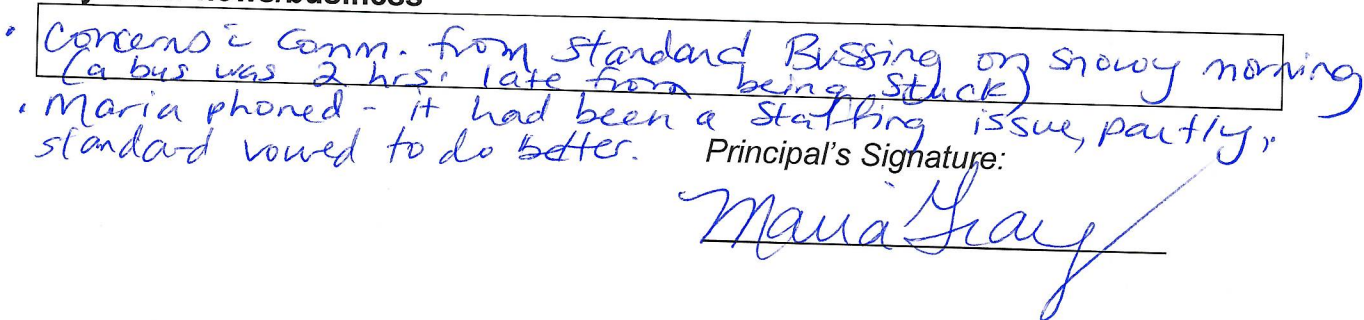 news/business
• Concerns c̄ Comm. from Standard Bussing on snowy morning
(a bus was 2 hrs. late from being stuck)
• Maria phoned - it had been a staffing issue, partly,
standard vowed to do better.
Principal's Signature:
Maria Gray